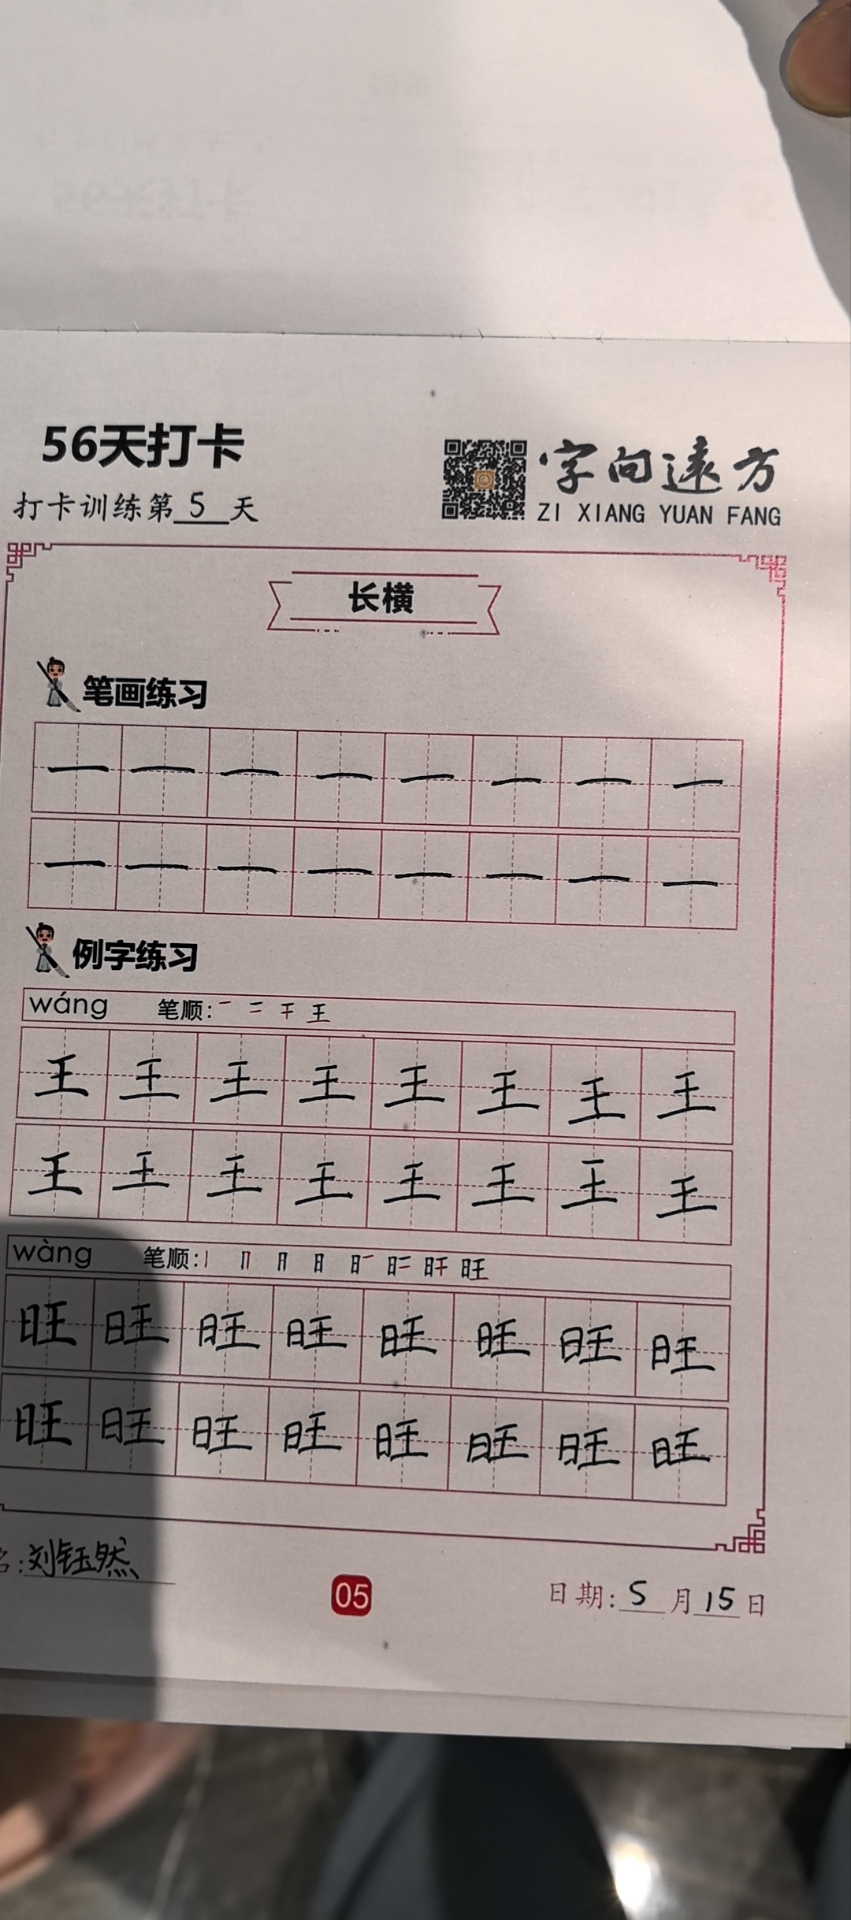 56天打卡
打卡训练第5天
字向远方
ZI XIANG YUAN FANG
长横
笔画练习
一 一 一 一 一 一 一 一
一 一 一 一 一 一 一 一
例字练习
wáng 笔顺: 一 二 干 王
王 王 王 王 王 王 王 王
王 王 王 王 王 王 王 王
wàng 笔顺:
旺
旺 旺 旺 旺 旺 旺 旺 旺
旺 旺 旺 旺 旺 旺 旺 旺
名:刘钰然
05
日期:5月15日